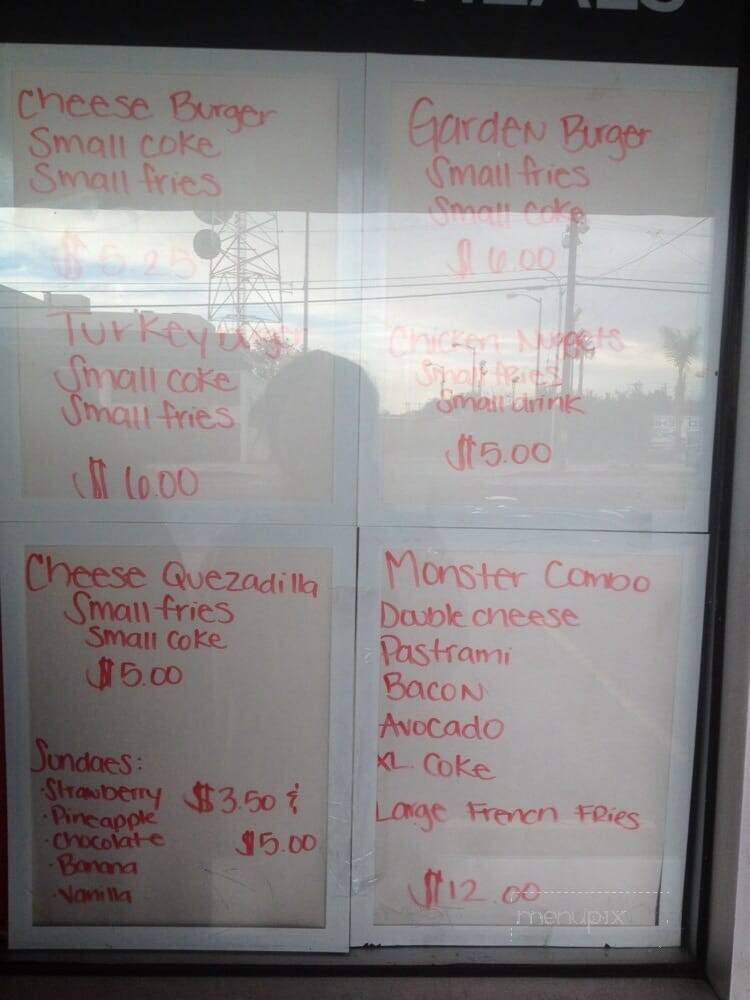 MEALS
Cheese Burger
Small coke
Small fries
$5.25
Turkey
Small coke
Small fries
$6.00
Garden Burger
Small fries
Small coke
$6.00
Chicken Nuggets
Small fries
Small drink
$5.00
Cheese Quezadilla
Small fries
Small coke
$5.00
Sundaes:
·Strawberry $3.50 &
·Pineapple
·Chocolate $5.00
·Banana
·Vanilla
Monster Combo
Double cheese
Pastrami
Bacon
Avocado
XL. Coke
Large French FRies
$12.00
menupix